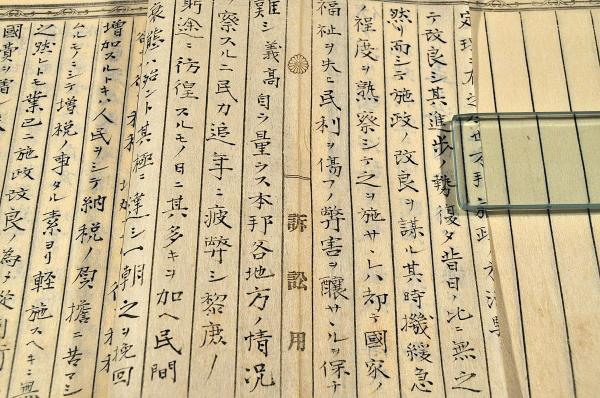 テ改良シ其進歩ノ勢復タ昔日ノ比ニ無之
然リ而シテ施政ノ改良ヲ謀ル其時機緩急
ノ程度ヲ熟察シテ之ヲ施サヽレハ却テ國家ノ
福祉ヲ失ヒ民利ヲ傷フノ弊害ヲ釀サヽルヲ保テ
訴訟用
難シ義高自ラ量ラス本邦各地方ノ情況
察スルニ民力追年ニ疲弊シ黎庶ノ
途ニ彷徨スルモノ日ニ其多キヲ加ヘ民間
衰態殆ント其極ニ達シ一朝之ヲ挽回
増加スルトキハ人民ヲシテ納税ノ負擔ニ苦マシ
ムルモノニシテ増税ノ事タル素ヨリ軽施スヘキニ無
之然レトモ業已ニ施政改良ノ為メ
國費ヲ